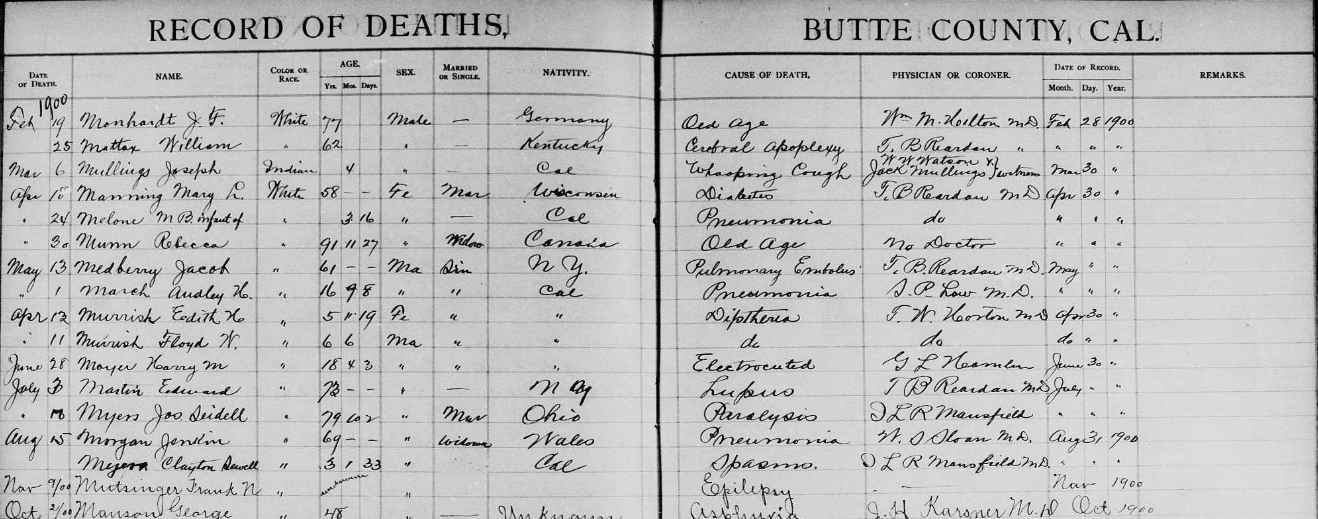 RECORD OF DEATHS, BUTTE COUNTY, CAL.
DATE OF DEATH. NAME. COLOR OR RACE. AGE. Yrs. Mos. Days. SEX. MARRIED OR SINGLE. NATIVITY. CAUSE OF DEATH, PHYSICIAN OR CORONER. DATE OF RECORD. Month. Day. Year. REMARKS.
1900
Feb 19 Monhardt J. F. White 77 Male — Germany Old Age Wm M. Hilton M.D. Feb 28 1900
25 Mattax William " 62 " — Kentucky Cerebral Apoplexy T. B Reardan " " " "
Mar 6 Mullings Joseph Indian 4 " — Cal Whooping Cough W W Watson & Jack Mullings Mar 30 "
Apr 18 Manning Mary L. White 58 – – Fe Mar Wisconsin Diabetes T. B Reardan M D Apr 30 "
" 24 Melone M B. infant of " 3 16 — Cal Pneumonia do " " "
" 30 Munn Rebecca " 91 11 27 " Widow Canada Old Age No Doctor " " "
May 13 Medberry Jacob " 61 – – Ma Sin N Y. Pulmonary Embolus T. B. Reardan M.D. May " "
" 1 March Audley H. " 16 9 8 " " Cal Pneumonia S. P. Low M.D. " " "
Apr 12 Murrish Edith H " 5 11 19 Fe " " Diptheria T. W. Horton M D Apr 30 "
" 11 Murrish Floyd W. " 6 6 Ma " " do do do " "
June 28 Moyer Harry M " 18 4 3 " " " Electrocuted G L Hamblin June 30 "
July 3 Martin Edward " 73 – " — N Y Lupus T B Reardan M D July " "
" Myers Jos Seidell " 79 10 2 " Mar Ohio Paralysis I L R Mansfield " " "
Aug 15 Morgan Jenkin " 69 – – " Widower Wales Pneumonia W. S Sloan M.D. Aug 31 1900
Myers Clayton Sewell " 3 1 33 " Cal Spasms. I L R Mansfield M.D. " " "
Nov 9/00 Mutsinger Frank N " unknown " Epilepsy - — Nov 1900
Oct 2/00 Manson George 48 Unknown Asphyxia J. H Karsner M. D Oct 1900